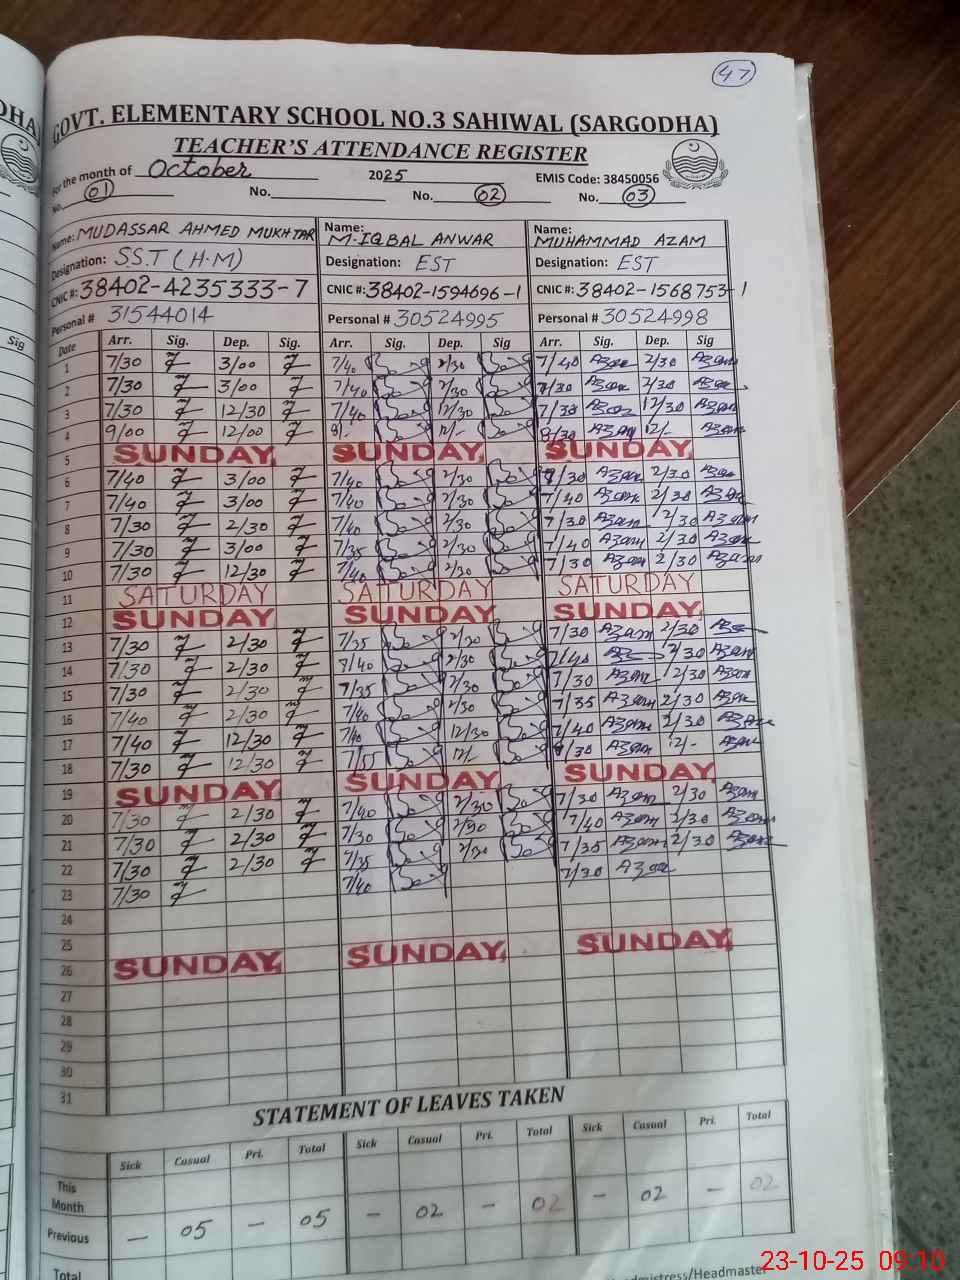 47
GOVT. ELEMENTARY SCHOOL NO.3 SAHIWAL (SARGODHA)
TEACHER'S ATTENDANCE REGISTER
For the month of October 2025 EMIS Code: 38450056
No. 01 No. No. 02 No. 03
Name: MUDASSAR AHMED MUKHTAR Name: M. IQBAL ANWAR Name: MUHAMMAD AZAM
Designation: S.S.T (H.M) Designation: EST Designation: EST
CNIC #: 38402-4235333-7 CNIC #: 38402-1594696-1 CNIC #: 38402-1568753-1
Personal # 31544014 Personal # 30524995 Personal # 30524998
Date Arr. Sig. Dep. Sig. Arr. Sig. Dep. Sig Arr. Sig. Dep. Sig
1 7/30 3/00 7/40 2/30 7/40 Azam 2/30 Azam
2 7/30 3/00 7/40 2/30 7/30 Azam 2/30 Azam
3 7/30 12/30 7/40 12/30 7/30 Azam 12/30 Azam
4 9/00 12/00 8/- 12/- 8/30 Azam 12/- Azam
5 SUNDAY, SUNDAY, SUNDAY,
6 7/40 3/00 7/40 2/30 7/30 Azam 2/30 Azam
7 7/40 3/00 7/40 2/30 7/40 Azam 2/30 Azam
8 7/30 2/30 7/40 2/30 7/30 Azam 2/30 Azam
9 7/30 3/00 7/35 2/30 7/40 Azam 2/30 Azam
10 7/30 12/30 7/40 2/30 7/30 Azam 2/30 Azam
11 SATURDAY SATURDAY SATURDAY
12 SUNDAY, SUNDAY, SUNDAY,
13 7/30 2/30 7/35 2/30 7/30 Azam 2/30 Azam
14 7/30 2/30 7/40 2/30 7/40 2/30 Azam
15 7/30 2/30 7/35 2/30 7/30 Azam 2/30 Azam
16 7/40 2/30 7/40 2/30 7/35 Azam 2/30 Azam
17 7/40 12/30 7/40 12/30 7/40 Azam Azam
18 7/30 12/30 7/55 12/- 8/30 Azam 12/- Azam
19 SUNDAY, SUNDAY, SUNDAY,
20 7/30 2/30 7/40 2/30 7/30 Azam 2/30 Azam
21 7/30 2/30 7/30 2/30 7/40 Azam 2/30 Azam
22 7/30 2/30 7/35 2/30 7/35 Azam 2/30 Azam
23 7/30 7/40 7/30 Azam
24
25
26 SUNDAY, SUNDAY, SUNDAY,
27
28
29
30
31
STATEMENT OF LEAVES TAKEN
Sick Casual Pri. Total Sick Casual Pri. Total Sick Casual Pri. Total
This Month
Previous — 05 — 05 — 02 — 02 — 02 — 02
Total
23-10-25 09:10